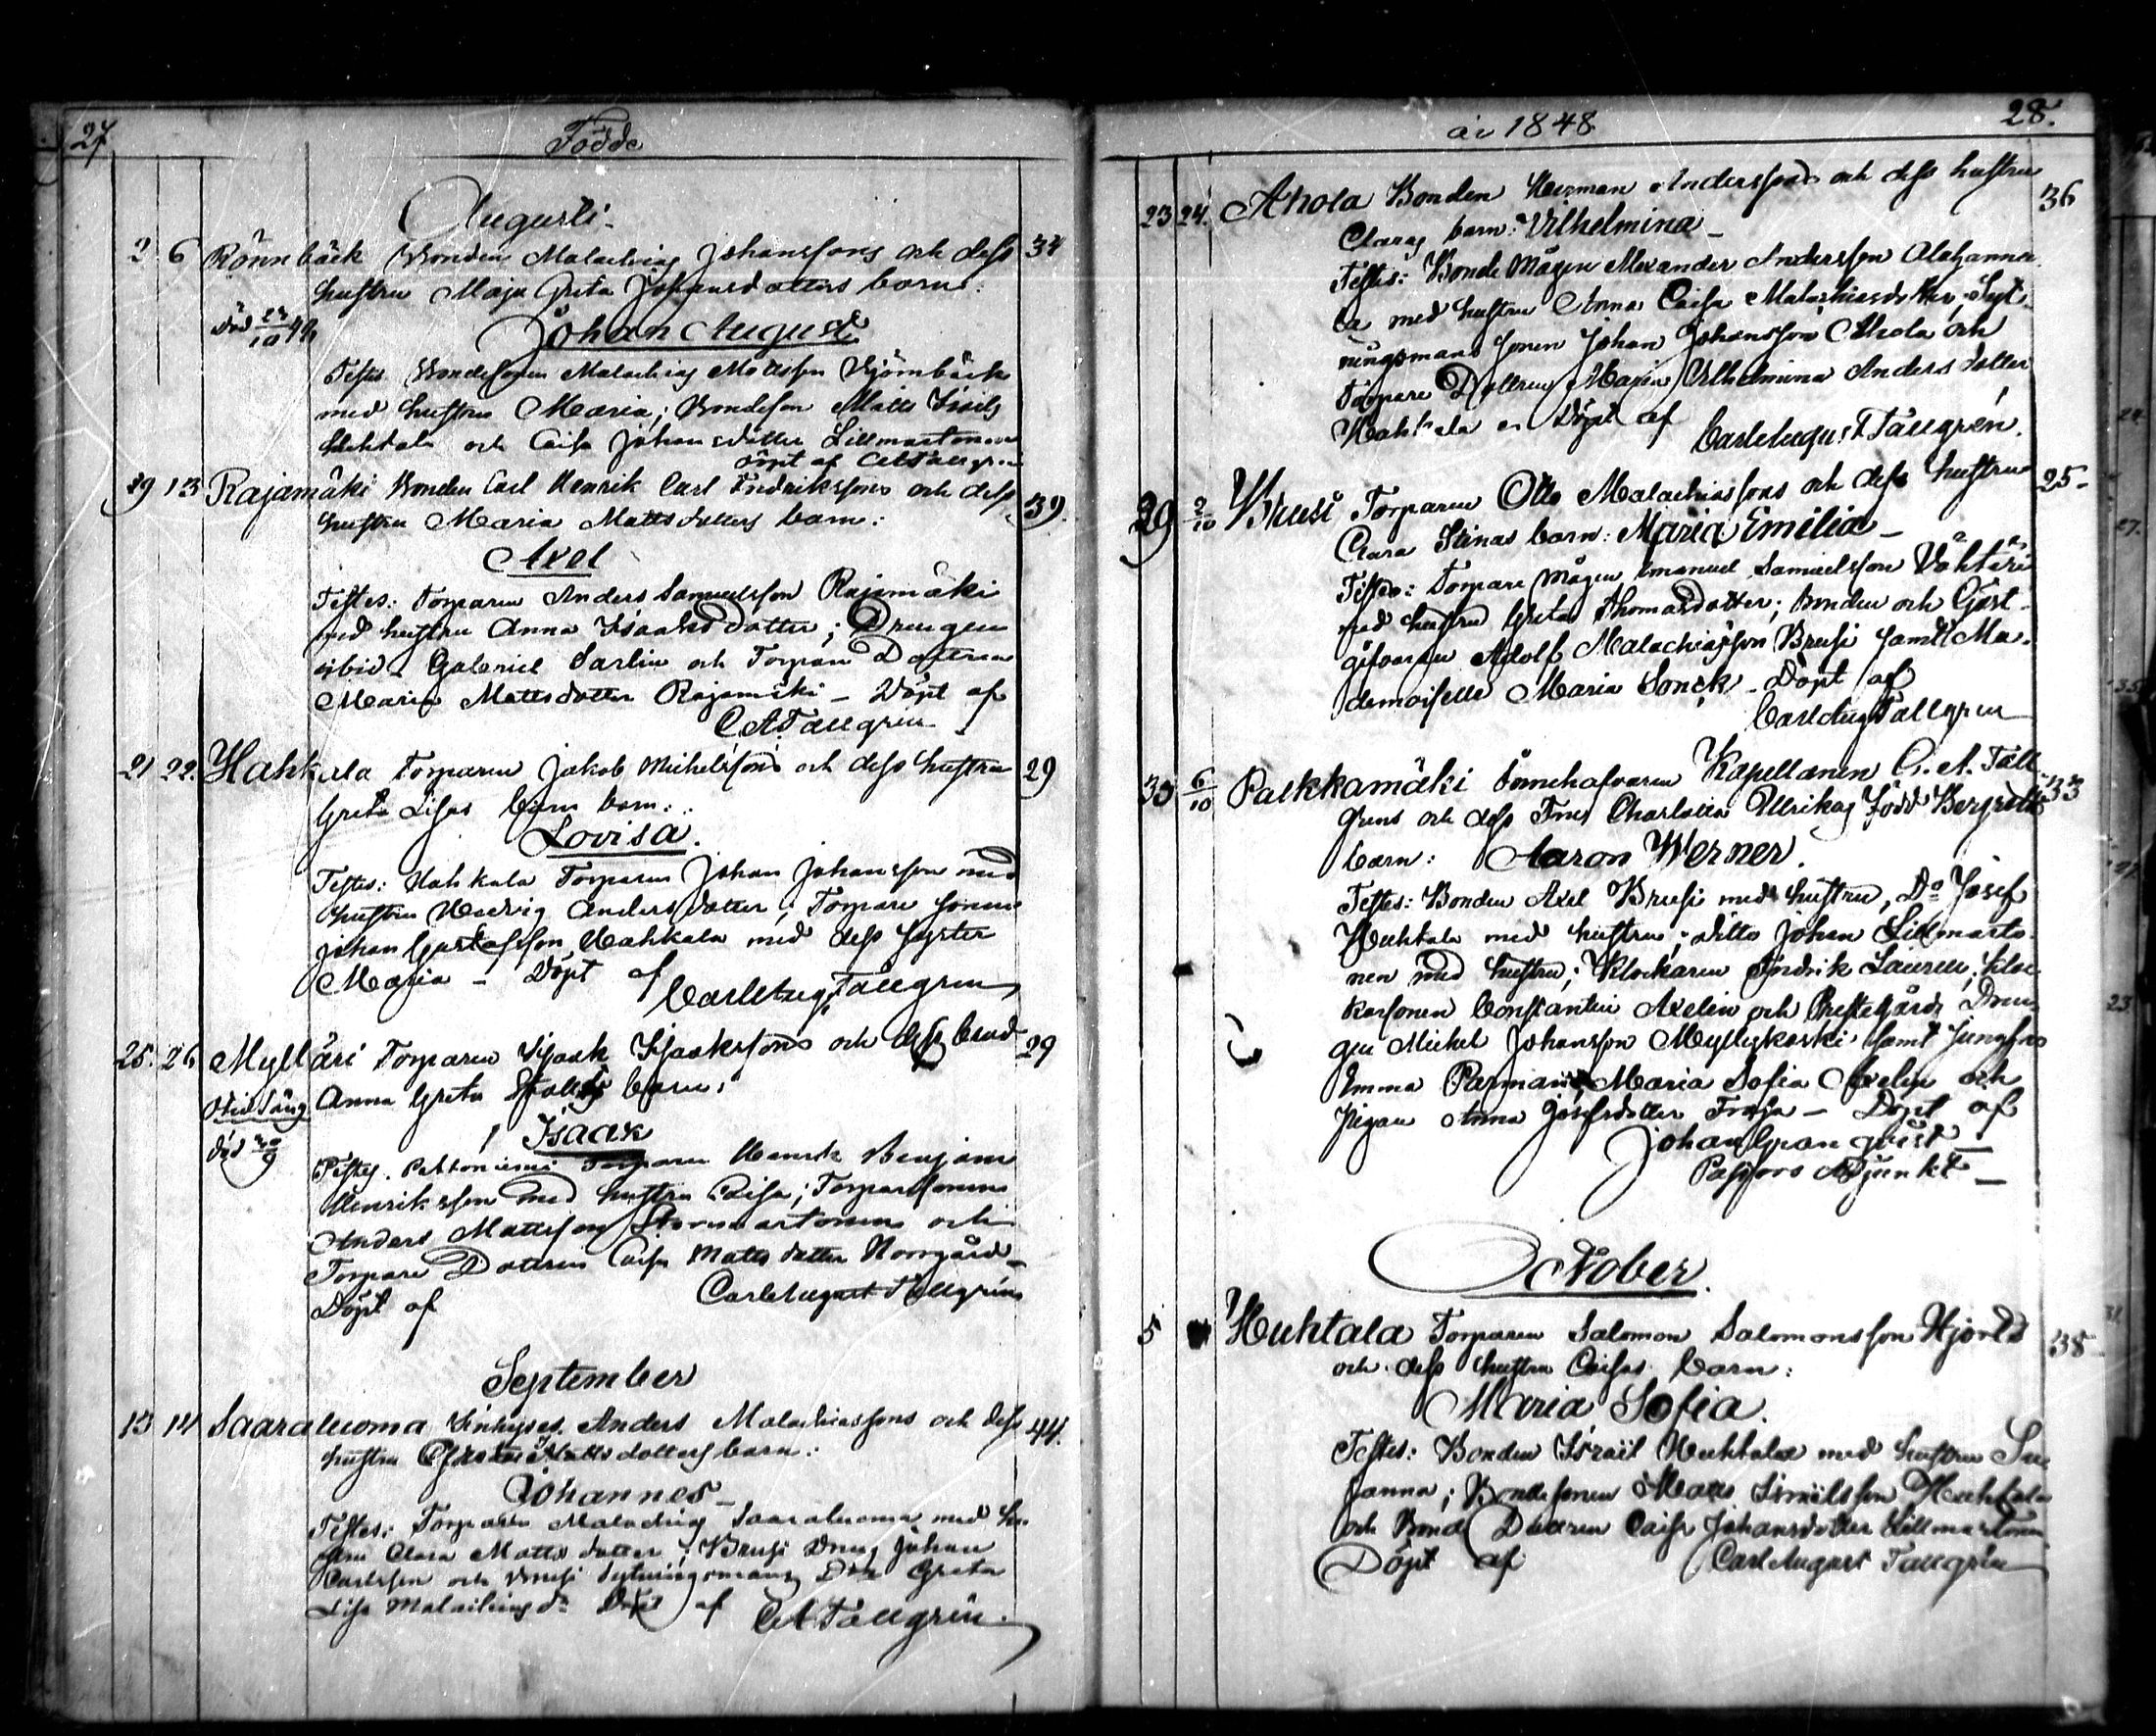 27.
Födde
Augusti
2 6 Rönnbäck Bonden Malachias Johanssons och dess 34
hustru Maja Greta Johansdotters barn:
död 23/10 49
Johan August
Testes Bondesonen Malachias Mattsson Björnbäck
med hustru Maria; Bondeson Matts Isr
Huhtala och Caisa Johansdotter Lillmartonen
döpt af CATallgren
29 13 Rajamäki Bonden Carl Henrik Carl Fredrikssons och dess 39.
hustru Maria Mattsdotters barn:
Axel
Testes: Torparen Anders Samuelsson Rajamäki
med hustru Anna Isaaksdotter; Drengen
ibid. Gabriel Sarlin och Torpare Dottren
Maria Mattsdotter Rajamäki – Döpt af
CATallgren
21 22. Hahkala Torparen Jakob Michelssons och dess hustru 29
Greta Lisas barn:
Lovisa.
Testes: Hahkala Torparen Johan Johansson med
hustru Hedvig Andersdotter; Torpare sonen
Johan Gustafsson Hahkala med dess syster
Maria – Döpt af
Carl Aug. Tallgren
25. 26 Mylläri Torparen Isaak Isaakssons och dess brud 29
Anna Greta barn:
död 30/9
Isaak
Testes. Torparen Henrik Benjam
Henriksson med hustru Caisa; Torparesonen
Anders Mattsson Stormartonen och
Torpare Dottren Caisa Mattsdotter Norrgård –
Döpt af Carl August Tallgren
September
13 14 Saaraluoma Inhyses Anders Malachiassons och dess 44.
hustru Mattsdotters barn:
Johannes –
Testes: Torparen Malachias Saaraluoma med hu
stru Clara Mattsdotter; Brusi Dreng Johan
Carlsson och Brusi Sytningsmans Dtr Greta
Lisa Malachiasdr Döpt af CATallgren.
år 1848
28.
23 24. Ahola Bonden Herman Anderssons och dess hustru 36
Claras barn: Vilhelmina –
Testes: Bonde Mågen Alexander Andersson Alahanna
la med hustru Anna Caisa Malachiasdotter; Syt-
ningsmans sonen Johan Johansson Ahola och
Torpare Dottren Maria Vilhelmina Andersdotter
Hahkala – Döpt af
Carl August Tallgren.
29 2/10 Brusi Torparen Otto Malachiassons och dess hustru 25-
Clara Stinas barn: Maria Emilia –
Testes: Torpare Mågen Emanuel Samuelsson Vähtäri
med hustru Greta Thomasdotter; Bonden och Gäst-
gifvaren Adolf Malachiasson Brusi samt Ma-
demoiselle Maria Sonck – Döpt af
Carl Aug Tallgren
30 6/10 Palkkamäki Innehafvaren Kapellanen C. A. Tall- 33
grens och dess Fru Charlotta Ullrikas född Bergroth
barn: Aaron Werner.
Testes: Bonden Axel Brusi med hustru, Do Josef
Huhtala med hustru; ditto Johan Lillmarto-
nen med hustru; Klockaren Fredrik Laurell; kloc
karsonen Constantin Axelin och Prestegårds Dren-
gen Michel Johansson Myllykoski samt Jungfru
Emma Parmain, Maria Sofia Axelin och
Pigan Anna Josefsdotter – Döpt af
Johan Granqvist
Pastors Adjunkt –
October.
5 Huhtala Torparen Salomon Salomonsson Hjorts 38-
och dess hustru Caisas barn:
Maria Sofia.
Testes: Bonden Israël Huhtala med hustru Su
sanna; Bondesonen Matts Israëlsson Huhtala
och Bonde Dottren Caisa Johansdotter Lillmartonen
Döpt af Carl August Tallgren